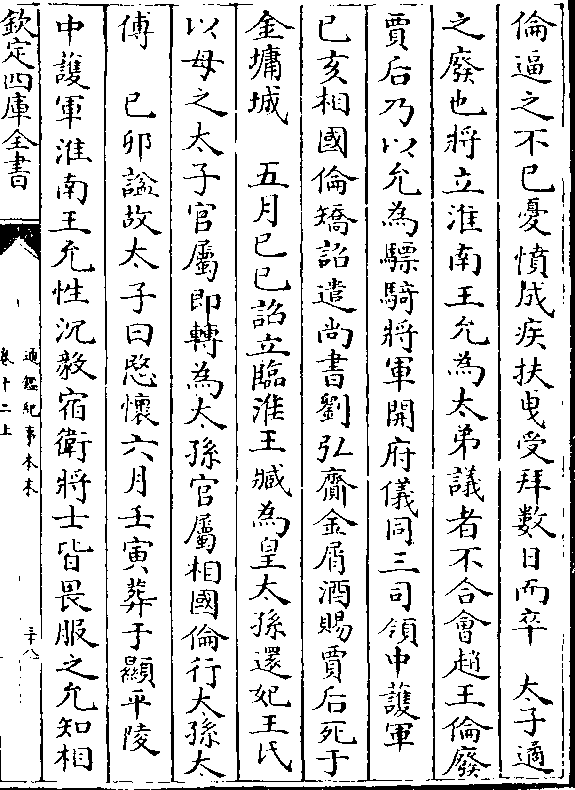 倫逼之不已憂憤成疾扶曳受拜數日而卒　太子遹
之廢也將立淮南王允為太弟議者不合會趙王倫廢
賈后乃以允為驃騎將軍開府儀同三司領中護軍
已亥相國倫矯詔遣尚書劉弘齎金屑酒賜賈后死于
金墉城　五月已巳詔立臨淮王臧為皇太孫還妃王氏
以母之太子官屬即轉為太孫官屬相國倫行太孫太
傅　已卯諡故太子曰愍懷六月壬寅葬于顯平陵
中護軍淮南王允性沉毅宿衛將士皆畏服之允知相
欽定四庫全書
通鑑紀事本末
卷十二上
三十八